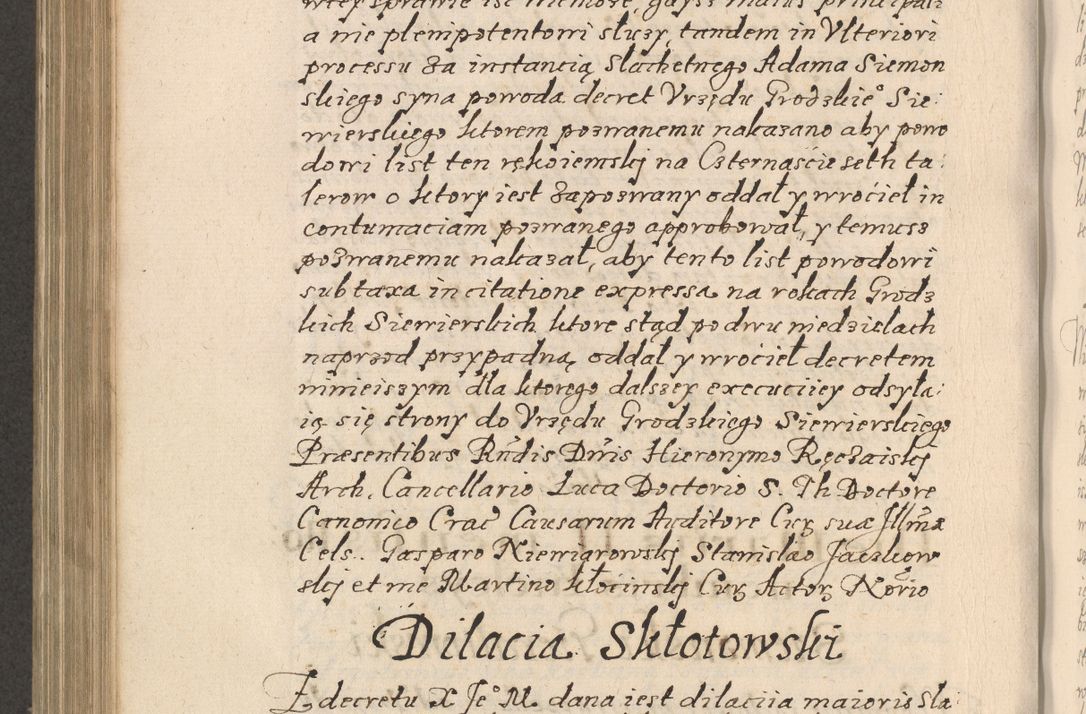 wtey sprawie isc niemoże, gdysz maius principali
a nie plenipotentowi służy, tandem in Vlteriori
processu za instancią slachetnego Adama Siemon
skiego syna powoda decret Vrzędu Grodzkie° Sie:
wierskiego ktorem pozwanemu nakazano aby powo
dowi list ten rękoiemskj na Czternaście seth ta:
lerow o ktory iest zapozwany oddał y wrócieł in
contumaciam pozwanego approbował, y temusz
pozwanemu nakazał, aby tento list powodowi
sub taxa in citatione expressa na rokach Grodz
kich Siewierskich ktore stąd po dwu niedzielach
naprzod przypadną, oddał y wrócieł decretem
ninieiszym dla ktorego dalszey execuciiey odsyła:
ią się strony do Vrzędu Grodzkiego Siewierskiego
Præsentibus Rñdis Dñis Hieronymo Ręczaiskj
Arch. Cancellario Luca Doctorio S. Th Doctore
Canonico Crac̃ Causarum Auditore Cur̃ suæ Jllm̃æ
Cels.. Gasparo Niewigrowskj Stanislao Jaczkow
skj et me Martino Kłócinskj Cur̃ Actor̃ Nõrio
Dilacia Skłotowski
Z decretu X Je° M. dana iest dilaciia maioris sla